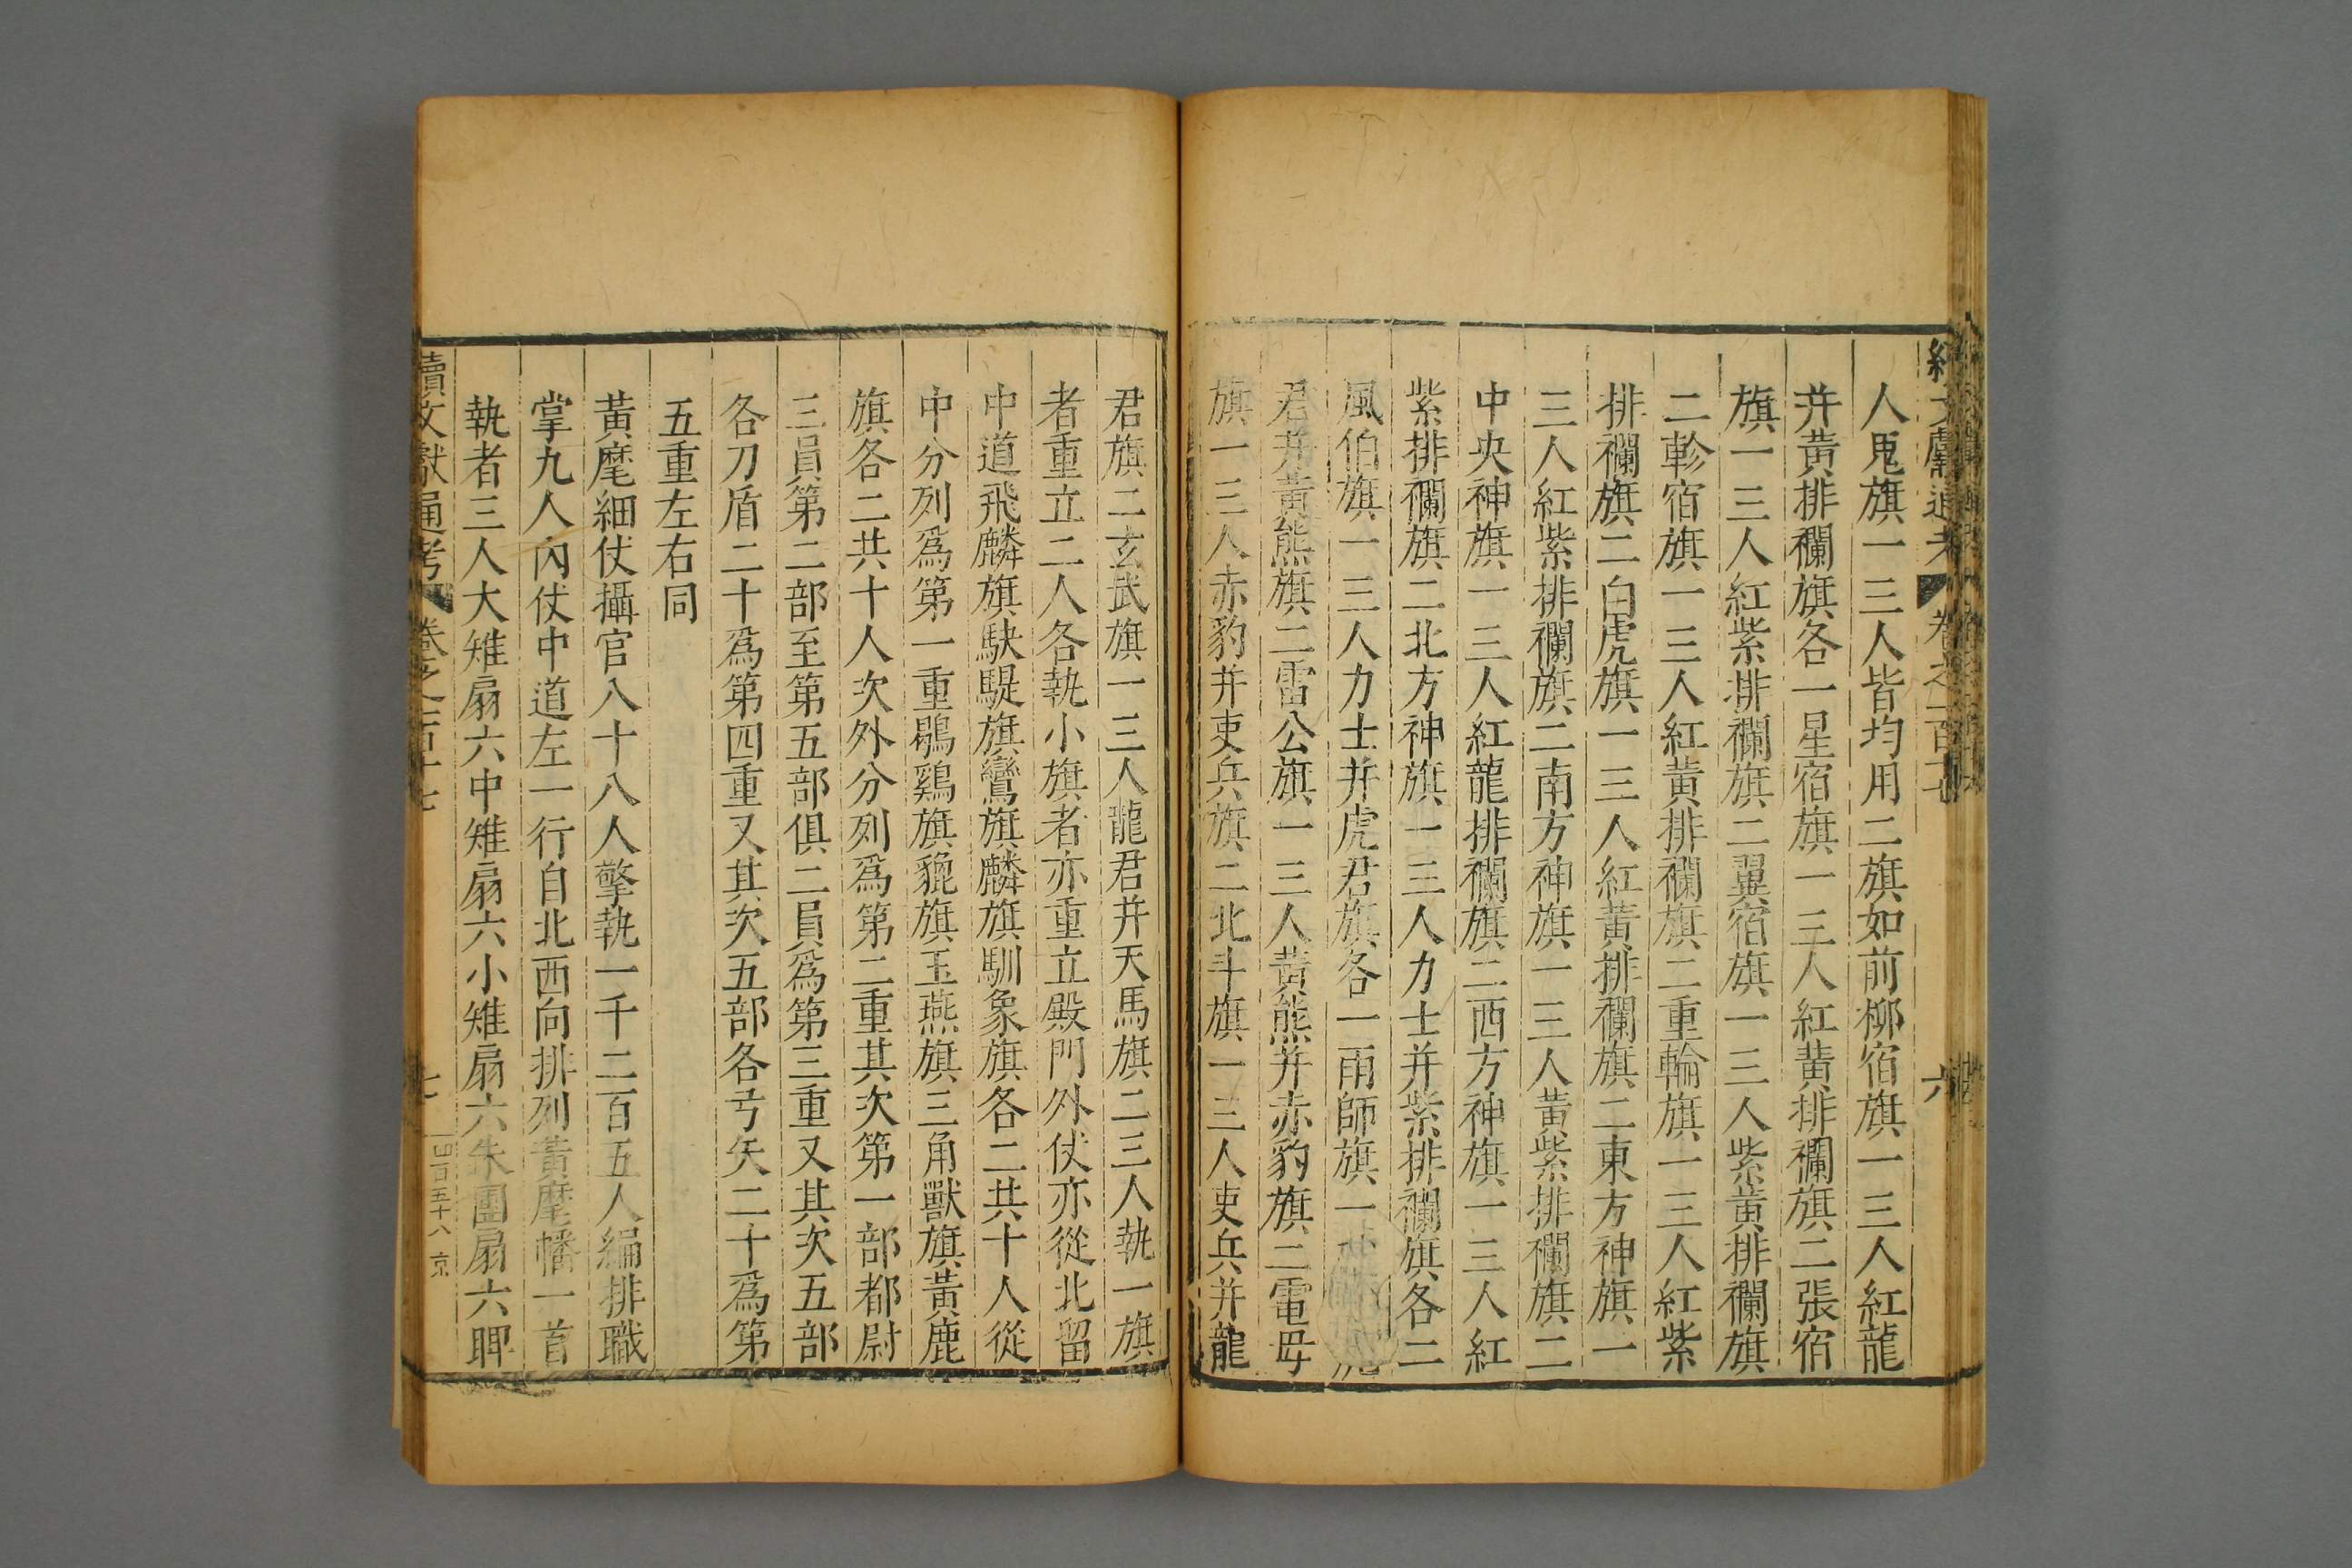 人鬼旗一三人皆均用二旗如前柳宿旗一三人紅龍
并黃排襴旗各一星宿旗一三人紅黃排襴旗二張宿
旗一三人紅紫排襴旗二翼宿旗一三人紫黃排襴旗
二軫宿旗一三人紅黃排襴旗二重輪旗一三人紅紫
排襴旗二白虎旗一三人紅黃排襴旗二東方神旗一
三人紅紫排襴旗二南方神旗一三人黃紫排襴旗二
中央神旗一三人紅龍排襴旗二西方神旗一三人紅
紫排襴旗二北方神旗一三人力士并紫排襴旗各二
風伯旗一三人力士并虎君旗各一雨師旗一
君并黃熊旗二雷公旗一三人黃熊并赤豹旗二電毋
旗一三人赤豹并吏兵旗二北斗旗一三人吏兵并龍
君旗二玄武旗一三人龍君并天馬旗二三人執一旗
者重立二人各執小旗者亦重立殿門外仗亦從北留
中道飛麟旗駃騠旗鸞旗麟旗馴象旗各二共十人從
中分列爲第一重鶡鷄旗貔旗玉燕旗三角獸旗黃鹿
旗各二共十人次外分列爲第二重其次第一部都尉
三員第二部至第五部俱二員爲第三重又其次五部
各刀盾二十爲第四重又其次五部各弓矢二十爲第
五重左右同
黃麾細仗攝官八十八人擎執一千二百五人編排職
掌九人內仗中道左一行自北西向排列黃麾幡一首
執者三人大雉扇六中雉扇六小雉扇六朱團扇六睥
續文獻通考 卷之一百十七 七 四百五十八 京